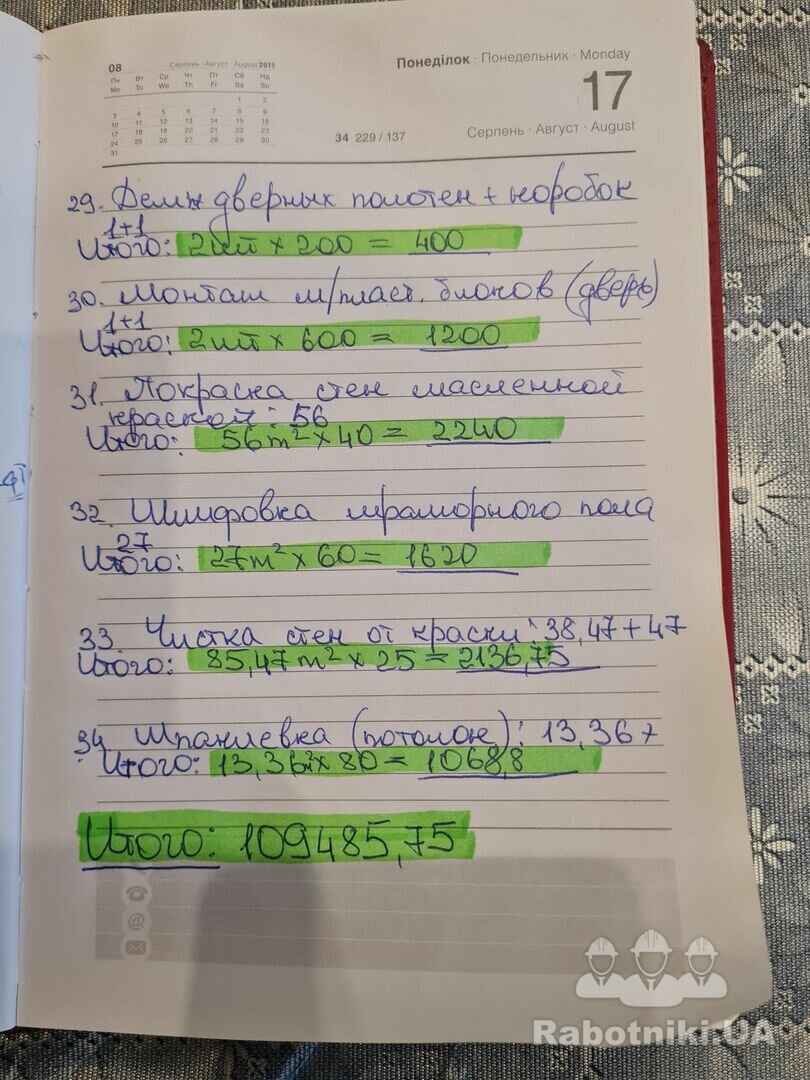 08 Серпень · Август · August 2015
Пн Вт Ср Чт Пт Сб Нд
Mo Tu We Th Fr Sa Su
1 2
3 4 5 6 7 8 9
10 11 12 13 14 15 16
17 18 19 20 21 22 23
24 25 26 27 28 29 30
31
Понеділок · Понедельник · Monday
17
34 229 / 137
Серпень · Август · August
29. Демж дверных полотен + коробок
1+1
Итого: 2шт х 200 = 400
30. Монтаж м/пласт. блоков (дверь)
1+1
Итого: 2шт х 600 = 1200
31. Покраска стен масленной
краской: 56
Итого: 56m² х 40 = 2240
32. Шлифовка мраморного пола
27
Итого: 27m² х 60 = 1620
33. Чистка стен от краски: 38,47 + 47
Итого: 85,47m² х 25 = 2136,75
34. Шпаклевка (потолок): 13,36 +
Итого: 13,36² х 80 = 1068,8
Итого: 109485,75
@
Rabotniki.UA